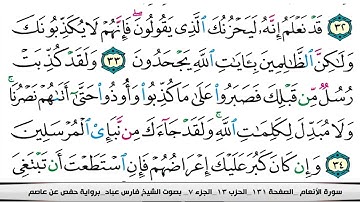 ٣٢ قَدْ نَعْلَمُ إِنَّهُۥ لَيَحْزُنُكَ ٱلَّذِى يَقُولُونَ ۖ فَإِنَّهُمْ لَا يُكَذِّبُونَكَ
وَلَـٰكِنَّ ٱلظَّـٰلِمِينَ بِـَٔايَـٰتِ ٱللَّهِ يَجْحَدُونَ ٣٣ وَلَقَدْ كُذِّبَتْ
رُسُلٌ مِّن قَبْلِكَ فَصَبَرُوا۟ عَلَىٰ مَا كُذِّبُوا۟ وَأُوذُوا۟ حَتَّىٰٓ أَتَىٰهُمْ نَصْرُنَا ۚ
وَلَا مُبَدِّلَ لِكَلِمَـٰتِ ٱللَّهِ ۚ وَلَقَدْ جَآءَكَ مِن نَّبَإِى۟ ٱلْمُرْسَلِينَ
٣٤ وَإِن كَانَ كَبُرَ عَلَيْكَ إِعْرَاضُهُمْ فَإِنِ ٱسْتَطَعْتَ أَن تَبْتَغِىَ
سورة الأنعام _الصفحة ١٣١_الحزب ١٣_الجزء ٧_ بصوت الشيخ فارس عباد_برواية حفص عن عاصم